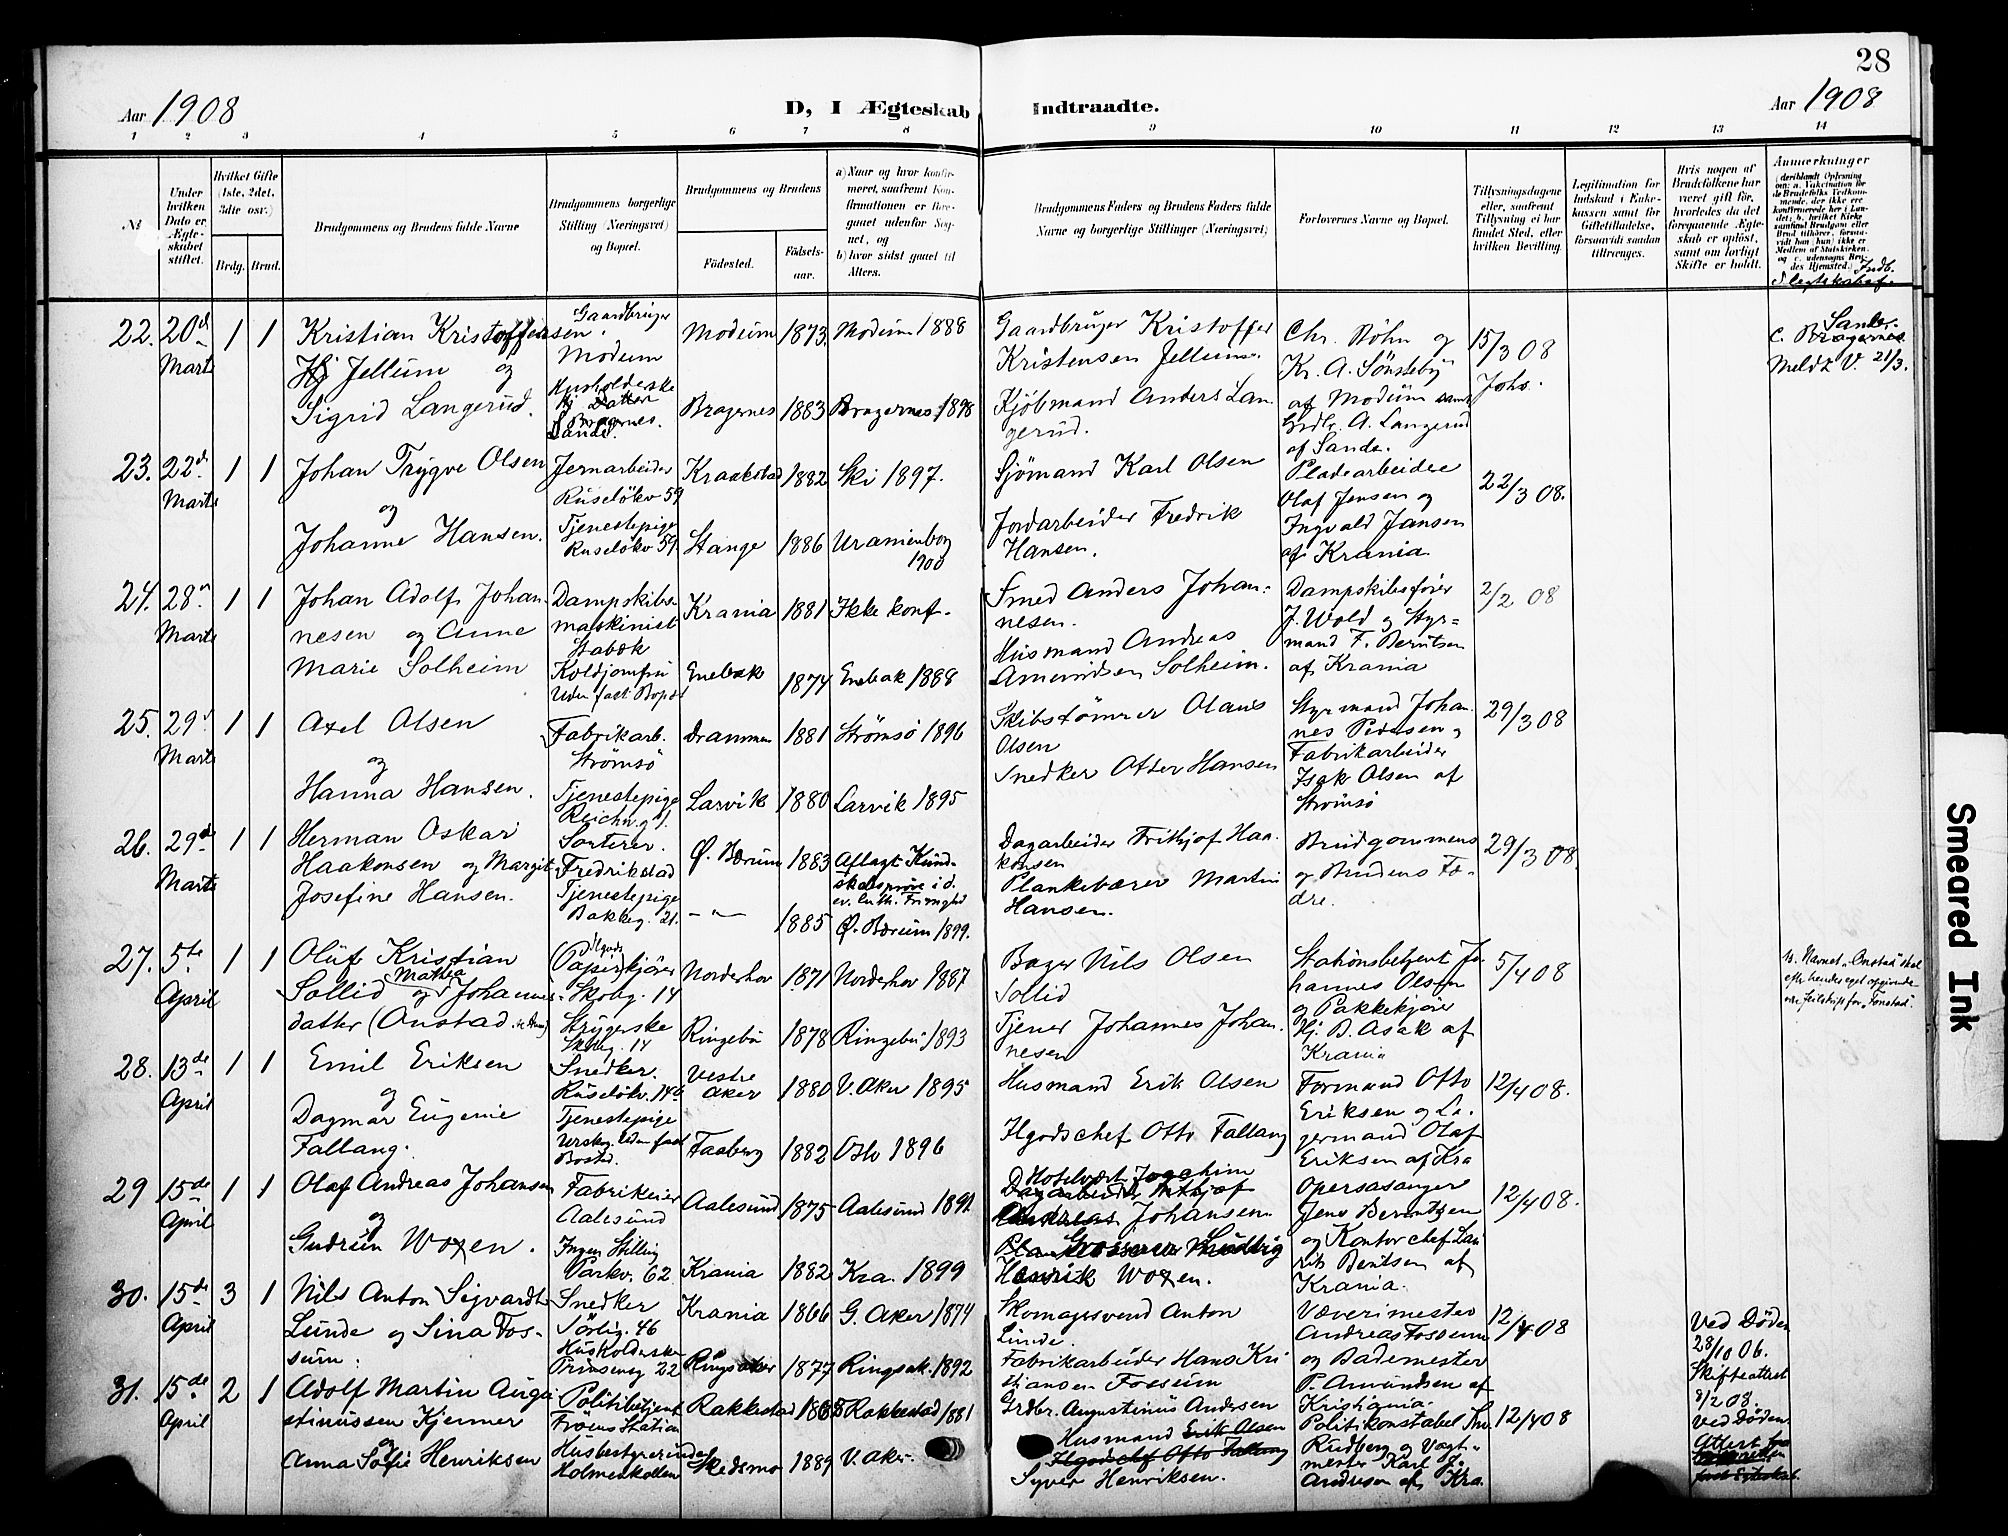 28
Aar 1908
D, I Ægteskab Indtraadte.
Aar 1908
1 2 3 4 5 6 7 8 9 10 11 12 13 14
No
Under hvilken Dato er Ægteskabet stiftet.
Hvilket Gifte (1ste, 2det, 3die osv.)
Brdg. Brud.
Brudgommens og Brudens fulde Navne
Brudgommens borgerlige Stilling (Næringsvei) og Bopæl.
Brudgommens og Brudens
Fødested.
Fødselsaar.
a) Naar og hvor konfirmeret, saafremt Konfirmationen er foregaaet udenfor Sognet, og
b) hvor sidst gaaet til Alters.
Brudgommens Faders og Brudens Faders fulde Navne og borgerlige Stillinger (Næringsvei)
Forlovernes Navne og Bopæl.
Tillysningsdagene eller, saafremt Tillysning ei har fundet Sted, efter hvilken Bevilling.
Legitimation for Indskud i Enkekassen samt for Giftetilladelse, forsaavidt saadan tiltrænges.
Hvis nogen af Brudefolkene har været gift før, hvorledes da det foregaaende Ægteskab er opløst, samt om lovligt Skifte er holdt.
Anmerkninger
22. 20de Marts 1 1
Kristian Kristoffersen
Hj Jellum og
Sigrid Langerud.
Gaardbruger
Modum
Husholderske
Hj Datter
Bragernes.
Sande.
Modum 1873 Modum 1888
Bragernes 1883 Bragernes 1898
Gaardbruger Kristoffer
Kristensen Jellum.
Kjöbmand Anders Langerud.
Chr. Böhn og
Kr. A. Sönsteby
af Modum samt
Grdbr. A. Langerud
af Sande.
15/3 08
Johs.
Sande.
c. Bragernes
Meldt V. 21/3.
23. 22de Marts 1 1
Johan Trygve Olsen
og
Johanne Hansen.
Jernarbeider
Ruselökv 59
Tjenestepige
Ruselökv 59.
Kraakstad 1882 Ski 1897.
Stange 1886 Uranienborg 1900
Sjömand Karl Olsen
Jordarbeider Fredrik
Hansen.
Pladearbeider
Olaf Jensen og
Ingvald Jansen
af Krania
22/3 08.
24. 28de Marts 1 1
Johan Adolf Johannesen og Anne
Marie Solheim
Dampskibsmaskinist
Stabæk
Koldjomfru
Uden fast Bopæl
Krania 1881 Ikke konf.
Enebak 1874 Enebak 1888
Smed Anders Johannesen.
Husmand Andreas
Amundsen Solheim.
Dampskibsfører
J. Wold og Styrmand F. Berntsen
af Krania
2/2 08
25. 29de Marts 1 1
Axel Olsen
og
Hanna Hansen.
Fabrikarb.
Strömsö
Tjenestepige
Drammen 1881 Strömsö 1896
Larvik 1880 Larvik 1895
Skibstömrer Olaus
Olsen
Snedker Otter Hansen
Styrmand Johannes Pedersen og
Fabrikarbeider
Isak Olsen af
Strömsö
29/3 08
26. 29de Marts 1 1
Herman Oskar
Haakonsen og Margit
Josefine Hansen.
Sorterer.
Fredrikstad
Tjenestepige
Bakkeg. 21.
Ø. Bærum 1883 Aflagt Kundskabsprøve i d. ev. luth. Frimghd
1885 Ø. Bærum 1899.
Dagarbeider Frithjof Haakonsen
Plankebærer Martin
Hansen.
Brudgommens
og Brudens Fædre.
29/3 08.
27. 5te April 1 1
Oluf Kristian
Sollid og Mathea Johannesdatter (Onstad)
Ilgods
Papirkjører
Skobg. 14
Strygerske
Skobg. 14
Norderhov 1871 Norderhov 1887
Ringebu 1878 Ringebu 1893
Bager Nils Olsen
Sollid
Tjener Johannes Johannesen
Stationsbetjent Johannes Olsen
og Pakkekjører
Hj. B. Asak af
Krania
5/4 08
Navnet „Onstad" skal
efter hendes eget opgivende
være feilskrift for „Tonstad".
28. 13de April 1 1
Emil Eriksen
og
Dagmar Eugenie
Fallang.
Snedker.
Ruselökv. 14b
Tjenestepige
Uden fast
Bosted.
Vestre Aker 1880 V. Aker 1895
Faaberg 1882 Oslo 1896
Husmand Erik Olsen
Ilgodschef Otto Fallang
Formand Otto
Eriksen og Lagermand Olaf
Eriksen af Kra
12/4 08.
29 15de April 1 1
Olaf Andreas Johansen
og
Gudrun Woxen.
Fabrikeier
Aalesund
Ingen Stilling
Parkv. 62
Aalesund 1875 Aalesund 1891
Krania 1882 Kra. 1899
Hotelvært Joachim
Dagarbeider Frithjof
Andreas Johansen.
Grosserer Ludvig
Henrik Woxen.
Operasanger
Jens Berntsen
og Kontorchef Lauritz Berntsen af
Krania.
12/4 08.
30. 15de April 3 1
Nils Anton Sigvardt
Lunde og Sina Fossum.
Snedker
Sörlig. 46
Husholderske
Prinsensg 22
Krania 1866 G. Aker 1874
Ringsaker 1877 Ringsak. 1892
Skomagersvend Anton
Lunde.
Fabrikarbeider Hans Kristiansen Fossum
Væverimester
Andreas Fossum
og Bademester
P. Amundsen af
Kristiania.
12/4 08
Ved Døden
28/10 06.
Skifteattest
8/2 08.
31. 15de April 2 1
Adolf Martin Augustinussen Kjerner
og
Anna Sofie Henriksen
Politibetjent
Fröens Station
Husbestyrerinde
Holmenkollen
Rakkestad 1865 Rakkestad 1881
Skedsmo 1889 V. Aker.
Grdbr. Augustinus Andersen
Husmand Erik Olsen
Ilgodschef Otto Fallang
Syver Henriksen.
Politikonstabel
Rudberg og Vagtmester Karl J.
Andersen af Kra.
12/4 08
Ved Døden
Attest
Smeared Ink